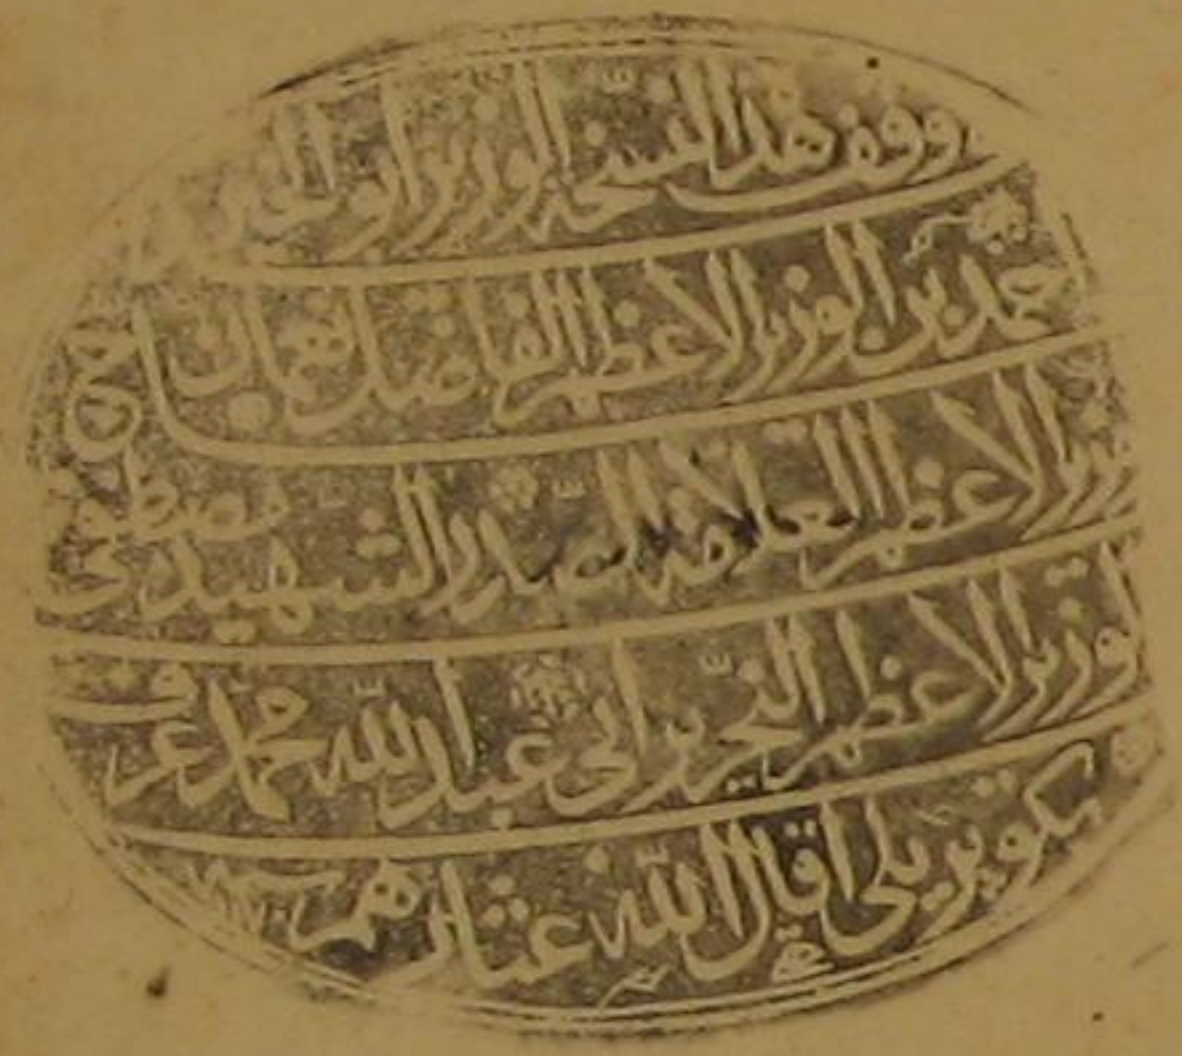 وقف هذالنسخه الوزير ابو الخير
احمد بن الوزير الاعظم الفاضل نعمان
وزير الاعظم العلامة الصدر الشهيد مصطفى
لوزير الاعظم النحّرير ابي عبد اللّه محمد عرف
بكوپريلي اقال اللّه عثارهم